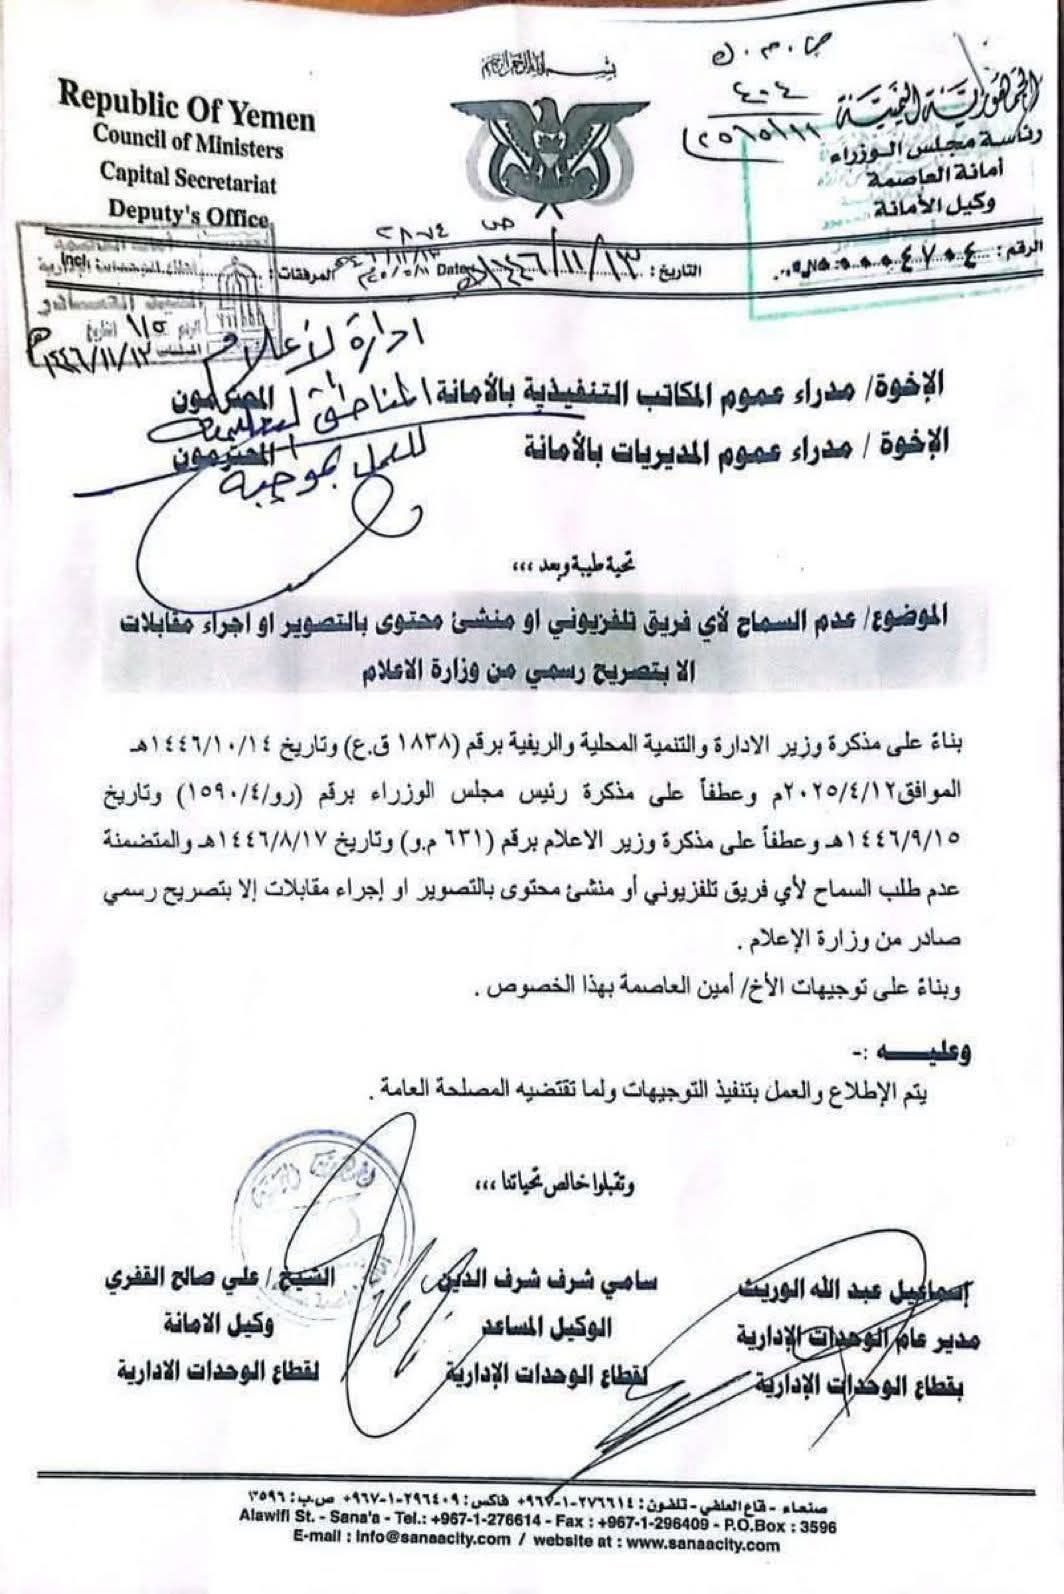 بسم الله الرحمن الرحيم
Republic Of Yemen
Council of Ministers
Capital Secretariat
Deputy's Office
الجمهورية اليمنية
رئاسة مجلس الوزراء
أمانة العاصمة
وكيل الأمانة
٤٠٤
الرقم: ٤٧٠٤
التاريخ: ١٤٤٦/١١/١٣
Date
المرفقات:
Incl:
١٤٤٦/١١/١٣هـ
ادارة الاعلام
الإخوة/ مدراء عموم المكاتب التنفيذية بالأمانة المحترمون
الإخوة / مدراء عموم المديريات بالأمانة المحترمون
للعمل بموجبه
تحية طيبة وبعد ،،،
الموضوع/ عدم السماح لأي فريق تلفزيوني او منشئ محتوى بالتصوير او اجراء مقابلات
الا بتصريح رسمي من وزارة الاعلام
بناءً على مذكرة وزير الادارة والتنمية المحلية والريفية برقم (١٨٣٨ ق.ع) وتاريخ ١٤٤٦/١٠/١٤هـ
الموافق٢٠٢٥/٤/١٢م وعطفاً على مذكرة رئيس مجلس الوزراء برقم (رو/١٥٩٠/٤) وتاريخ
١٤٤٦/٩/١٥هـ وعطفاً على مذكرة وزير الاعلام برقم (٦٣١ م.و) وتاريخ ١٤٤٦/٨/١٧هـ والمتضمنة
عدم طلب السماح لأي فريق تلفزيوني أو منشئ محتوى بالتصوير او إجراء مقابلات إلا بتصريح رسمي
صادر من وزارة الإعلام .
وبناءً على توجيهات الأخ/ أمين العاصمة بهذا الخصوص .
وعليـــه :-
يتم الإطلاع والعمل بتنفيذ التوجيهات ولما تقتضيه المصلحة العامة .
وتقبلوا خالص تحياتنا ،،،
اسماعيل عبد الله الوريث
مدير عام الوحدات الإدارية
بقطاع الوحدات الإدارية
سامي شرف شرف الدين
الوكيل المساعد
لقطاع الوحدات الإدارية
الشيخ / علي صالح القفري
وكيل الامانة
لقطاع الوحدات الادارية
صنعاء - قاع العلفي - تلفون: ٢٧٦٦١٤-١-٩٦٧+ فاكس: ٢٩٦٤٠٩-١-٩٦٧+ ص.ب: ٣٥٩٦
Alawifi St. - Sana'a - Tel.: +967-1-276614 - Fax : +967-1-296409 - P.O.Box : 3596
E-mail : info@sanaacity.com / website at : www.sanaacity.com